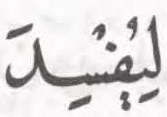 لِيُفْسِدَ